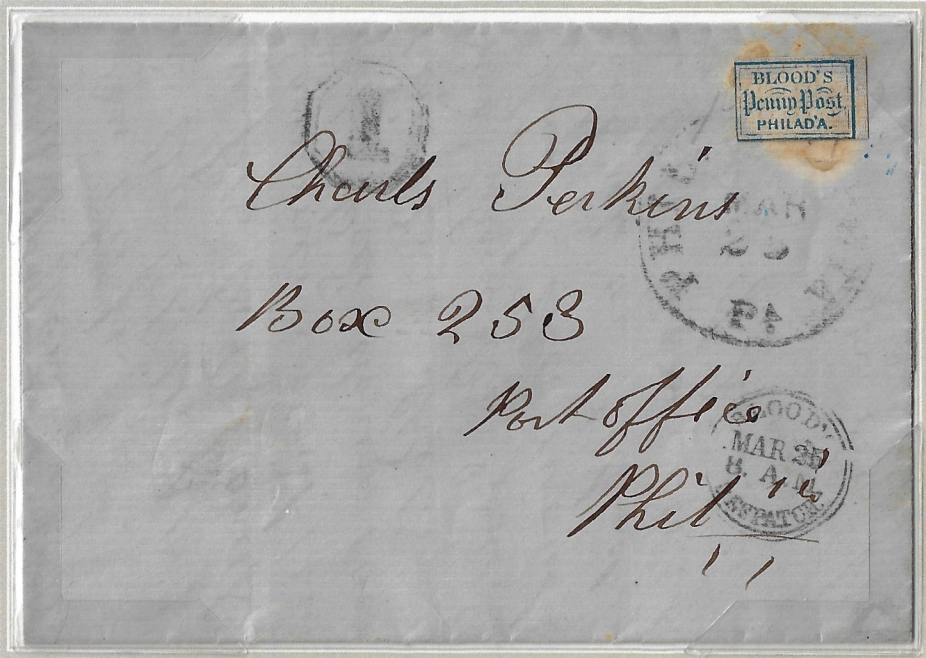 BLOOD'S
Penny Post,
PHILAD'A.
1
Charls Perkins
MAR
Pa
Box 253
Post office
BLOOD'S
MAR 25
8. A.M.
DESPATCH
Phil